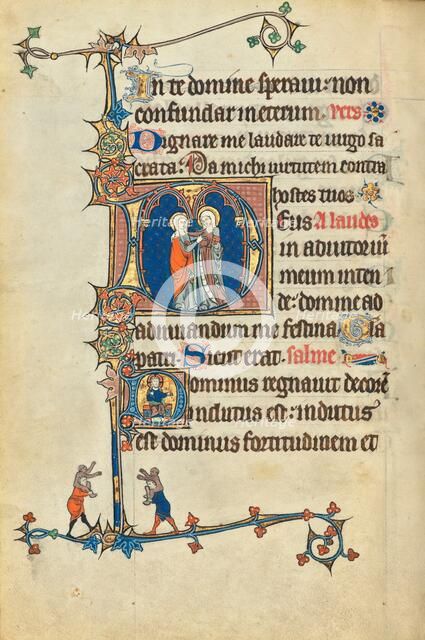 In te domine speraui: non
confundar in eternum. vers
Dignare me laudare te uirgo sa
crata: Da michi uirtutem contra
hostes tuos
Deus A laudes
in adiutoriū
meum inten
de: domine ad
adiuuandum me festina Glā
patri. Sicut erat. salme
Dominus regnauit decorē
indutus est: indutus
est dominus fortitudinem et
Heritage